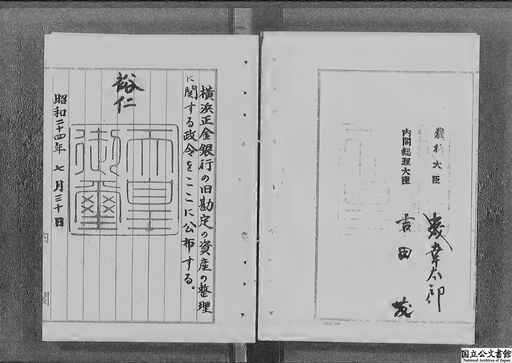 農林大臣 森幸太郎
内閣総理大臣 吉田茂
横浜正金銀行の旧勘定の資産の整理
に関する政令をここに公布する。
裕仁
天皇
御璽
昭和二十四年 七月三十日
内閣
国立公文書館
National Archives of Japan